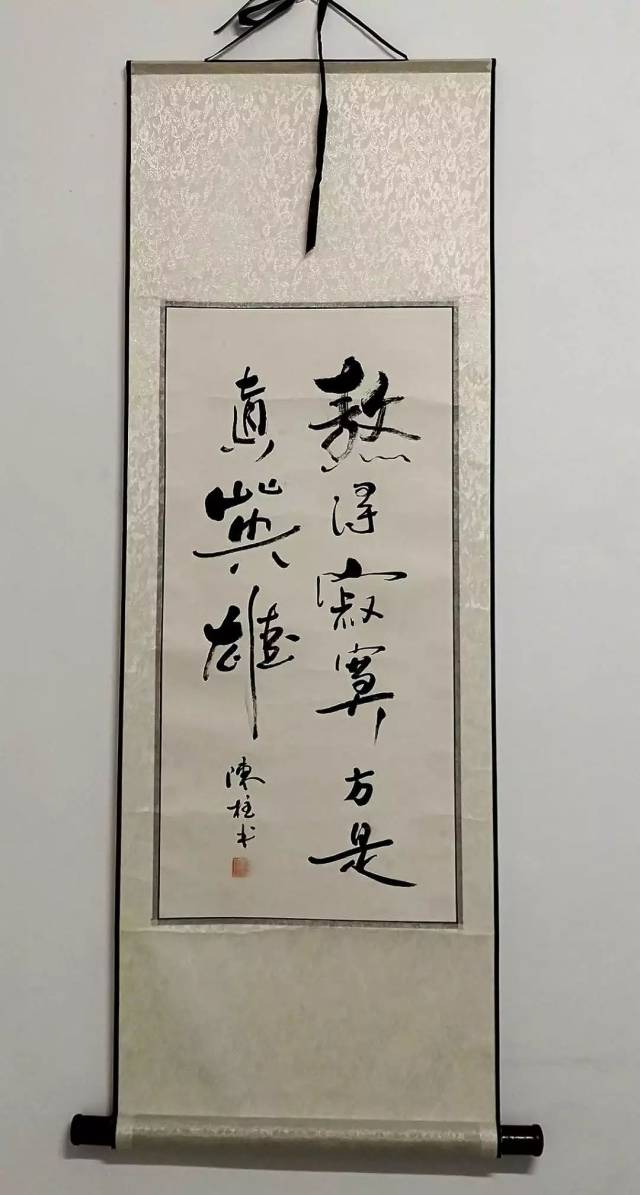 熬得寂寞方是
真英雄
陳柱书